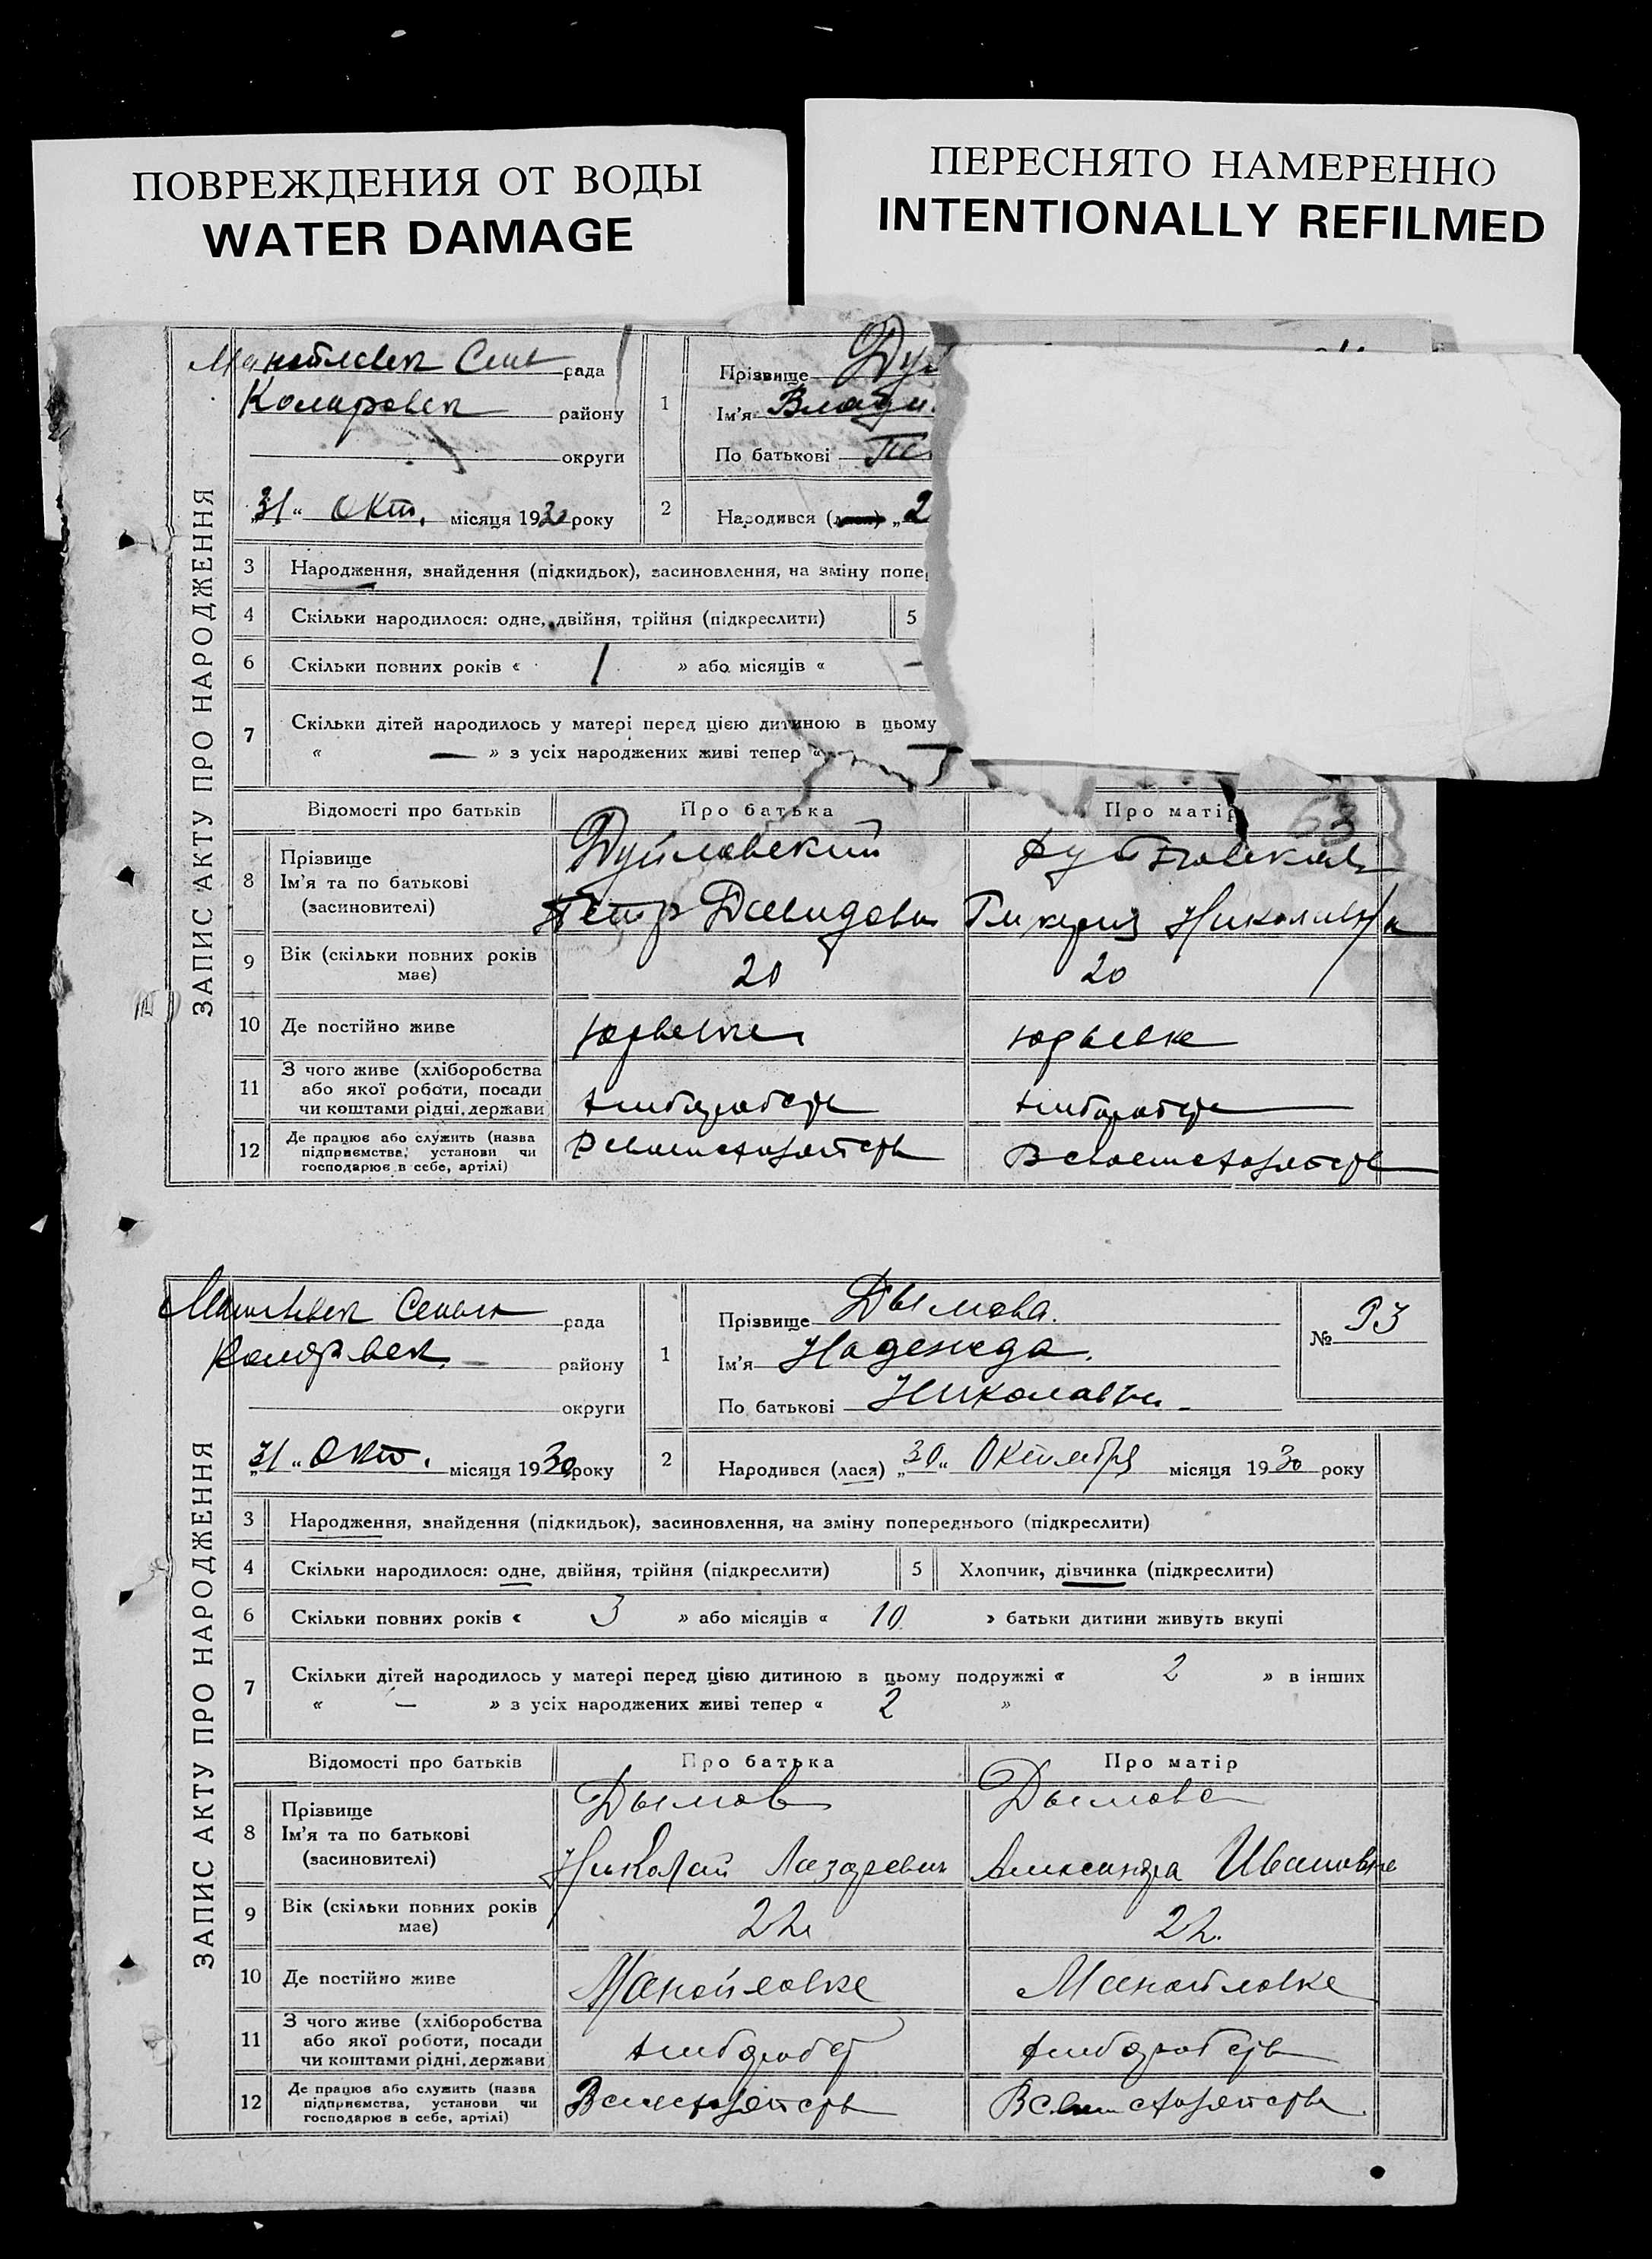 ПОВРЕЖДЕНИЯ ОТ ВОДЫ
WATER DAMAGE
ПЕРЕСНЯТО НАМЕРЕННО
INTENTIONALLY REFILMED
ЗАПИС АКТУ ПРО НАРОДЖЕННЯ
рада
району
округи
„31“ Окт. місяця 1930 року
1
Прізвище Ду
Ім'я Влади
По батькові Пе
2 Народився (лася) „2
3 Народження, знайдення (підкидьок), засиновлення, на зміну попе
4 Скільки народилося: одне, двійня, трійня (підкреслити) 5
6 Скільки повних років « 1 » або місяців « —
7 Скільки дітей народилось у матері перед цією дитиною в цьому
« — » з усіх народжених живі тепер «
63
Відомості про батьків Про батька Про матір
8 Прізвище
Ім'я та по батькові
(засиновителі)
Петр Давидович Гликерия Николаевна
9 Вік (скільки повних років має) 20 20
10 Де постійно живе Юрьевке Юрьевке
11 З чого живе (хліборобства
або якої роботи, посади
чи коштами рідні, держави)
12 Де працює або служить (назва
підприємства, установи чи
господарює в себе, артілі)
ЗАПИС АКТУ ПРО НАРОДЖЕННЯ
рада
району
округи
„31“ Окт. місяця 1930 року
1
Прізвище Дымова.
Ім'я Надежда.
По батькові Николаевна
№ 93
2 Народився (лася) „30“ Октября місяця 1930 року
3 Народження, знайдення (підкидьок), засиновлення, на зміну попереднього (підкреслити)
4 Скільки народилося: одне, двійня, трійня (підкреслити) 5 Хлопчик, дівчинка (підкреслити)
6 Скільки повних років « 3 » або місяців « 10 » батьки дитини живуть вкупі
7 Скільки дітей народилось у матері перед цією дитиною в цьому подружжі « 2 » в інших
« — » з усіх народжених живі тепер « 2 »
Відомості про батьків Про батька Про матір
8 Прізвище
Ім'я та по батькові
(засиновителі)
Дымов Дымова
Николай Лазаревич Александра Ивановна
9 Вік (скільки повних років має) 22 22.
10 Де постійно живе Манойловке Манойловке
11 З чого живе (хліборобства
або якої роботи, посади
чи коштами рідні, держави)
12 Де працює або служить (назва
підприємства, установи чи
господарює в себе, артілі)